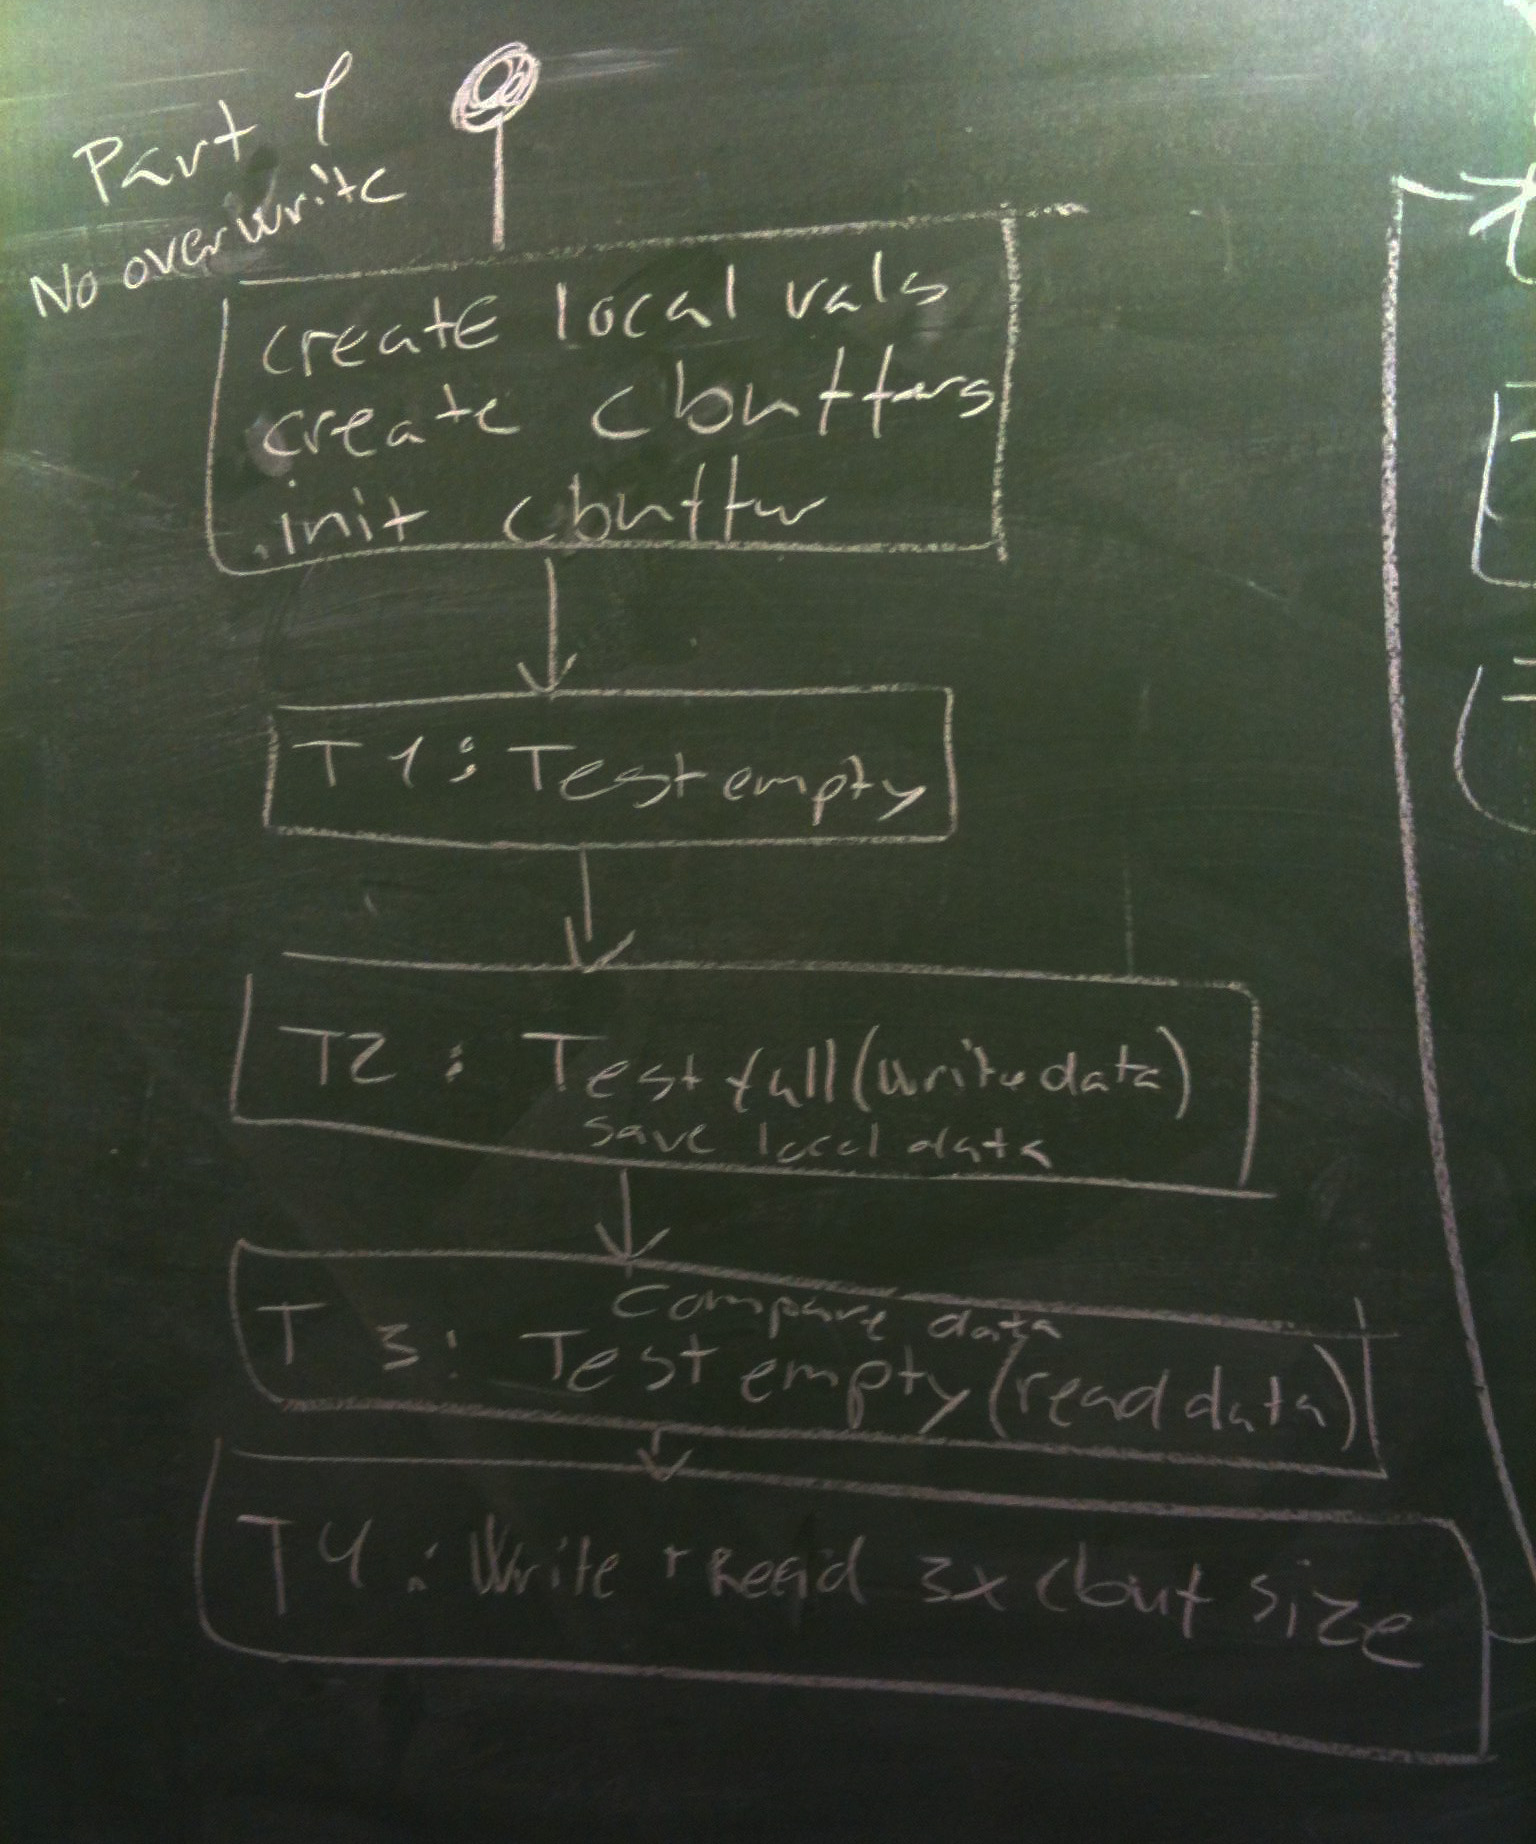 Part 1
No overwrite
create local vals
create cbuffers
init cbuffer
T1: Test empty
T2: Test full (write data)
save local data
Compare data
T3: Test empty (read data)
T4: Write + Read 3x cbuf size